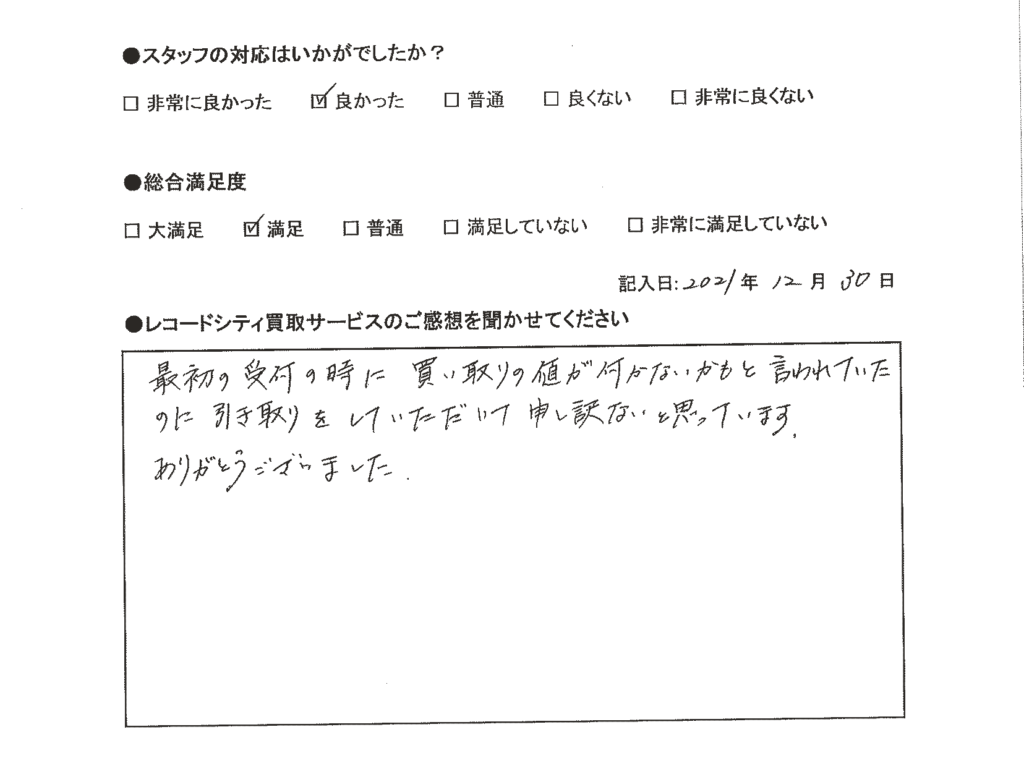 ●スタッフの対応はいかがでしたか？
□ 非常に良かった ☑ 良かった □ 普通 □ 良くない □ 非常に良くない
●総合満足度
□ 大満足 ☑ 満足 □ 普通 □ 満足していない □ 非常に満足していない
記入日:2021年 12月 30日
●レコードシティ買取サービスのご感想を聞かせてください
最初の受付の時に 買い取りの値が付かないかもと 言われていた
のに 引き取りを していただいて 申し訳ないと思っています.
ありがとうございました.